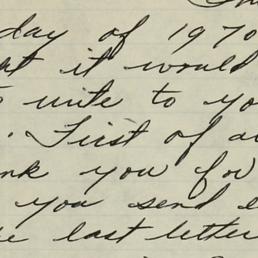 day of 1970
at it would
to write to yo
. First of al
nk you for
you send
e last letter